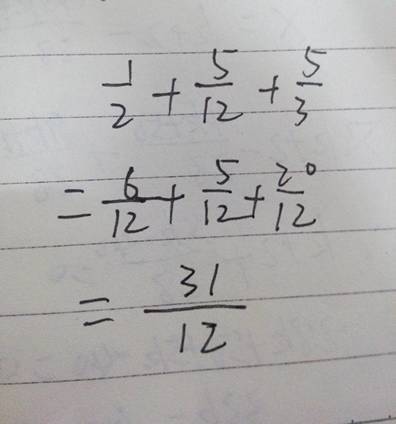 1/2 + 5/12 + 5/3
= 6/12 + 5/12 + 20/12
= 31/12